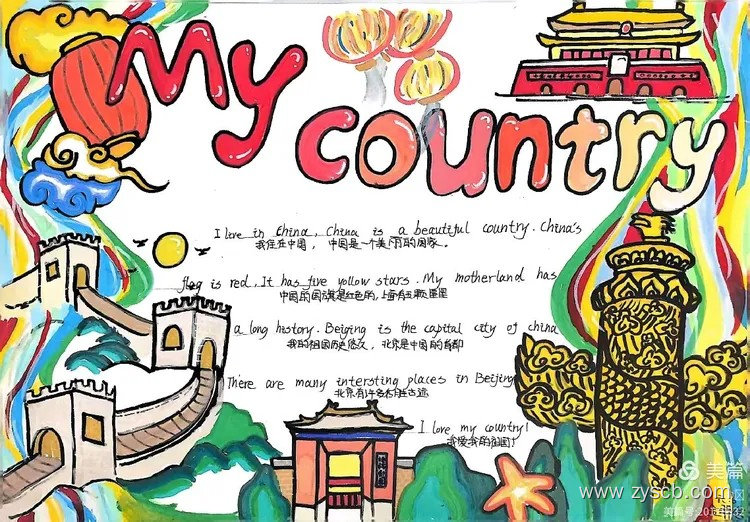 My
country
I live in China, China is a beautiful country. China's
我住在中国，中国是一个美丽的国家。
flag is red, It has five yollow stars. My motherland has
中国的国旗是红色的，上面有五颗星星
a long history. Beijing is the capital city of china
我的祖国历史悠久，北京是中国的首都
There are many intersting places in Beijing
北京有许多名胜古迹
I love my country!
我爱我的祖国！
美篇
www.zyscb.com
美篇号